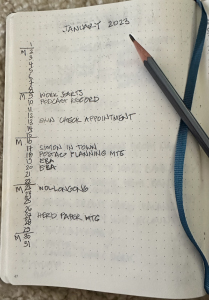 JANUARY 2023
1
M 2
3
4
5
6
7
8
M 9 WORK STARTS
10 PODCAST RECORD
11
12
13 SKIN CHECK APPOINTMENT
14
15
M 16
17 SIMON IN TOWN
18 PODCAST PLANNING MTG
19 EBA
20 EBA
21
22
M 23
24 WOLLONGONG
25
26
27
28 HERD PAPER MTG
29
M 30
31